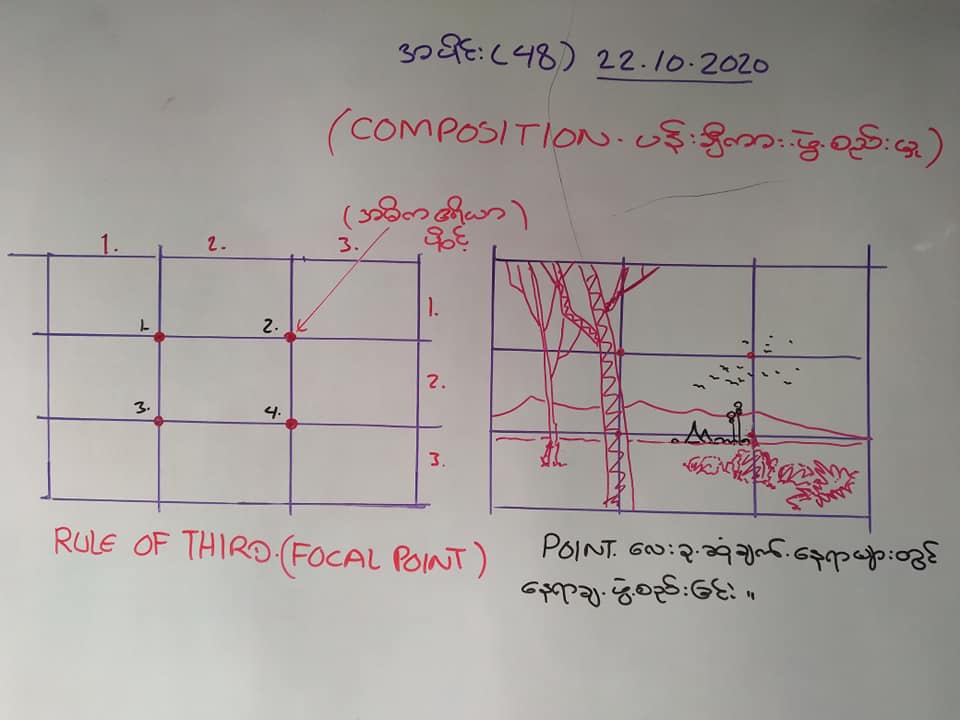 အပိုင်း (48) 22.10.2020
(COMPOSITION. ပန်းချီကား.ဖွဲ့.စည်းမှု)
(အဓိကဧရိယာ)
ပွိုင့်
1. 2. 3.
1.
1. 2.
2.
3. 4.
3.
RULE OF THIRD. (FOCAL POINT)
POINT. လေးခု.ဆုံချက်.နေရာများတွင်
နေရာချ.ဖွဲ့.စည်းခြင်း။